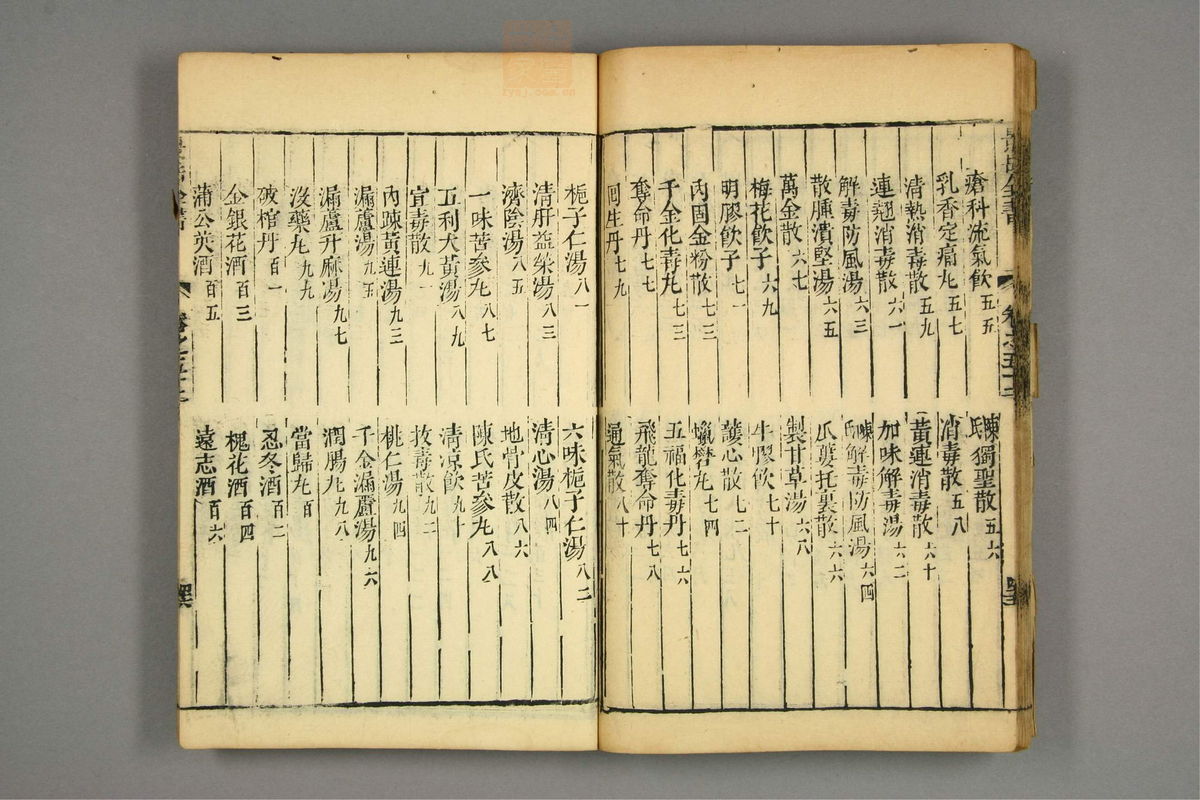 瘡科流氣飲五五
陳氏獨聖散五六
乳香定痛丸五七
消毒散五八
清熱消毒散五九
黃連消毒散六十
連翹消毒散六一
加味解毒湯六二
解毒防風湯六三
陳氏解毒防風湯六四
散腫潰堅湯六五
瓜蔞托裏散六六
萬金散六七
製甘草湯六八
梅花飲子六九
牛膠飲七十
明膠飲子七一
護心散七二
內固金粉散七三
蠟礬丸七四
千金化毒丸七三
五福化毒丹七六
奪命丹七七
飛龍奪命丹七八
回生丹七九
通氣散八十
梔子仁湯八一
六味梔子仁湯八二
清肝益榮湯八三
清心湯八四
濟陰湯八五
地骨皮散八六
一味苦參丸八七
陳氏苦參丸八八
五利大黃湯八九
清凉飲九十
宣毒散九一
拔毒散九二
內疎黃連湯九三
桃仁湯九四
漏蘆湯九五
千金漏蘆湯九六
漏蘆升麻湯九七
潤腸丸九八
沒藥丸九九
當歸丸百
破棺丹百一
忍冬酒百二
金銀花酒百三
槐花酒百四
蒲公英酒百五
遠志酒百六